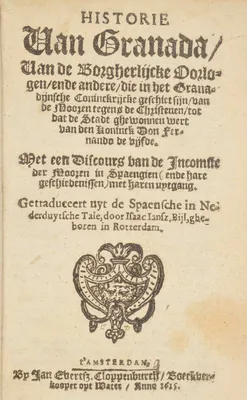 HISTORIE
Van Granada/
Van de Borgherlijcke Oorlo-
gen/ende andere/die in het Grana-
dijnsche Coninckrijcke geschiet sijn/van
de Mooren tegens de Christenen/tot
dat de Stadt ghewonnen wert
van den Koninck Don Fer-
nando de vijfde.
Met een Discours van de Incomste
der Mooren in Spaengien/ende hare
geschiedenissen/met haren uytgang.
Getraduceert uyt de Spaensche in Ne-
derduytsche Tale, door Isaac Iansz, Bijl, ghe-
boren in Rotterdam.
t'AMSTERDAM,
By Jan Evertsz. Cloppenburch/Boeckver-
kooper opt Water/Anno 1615.